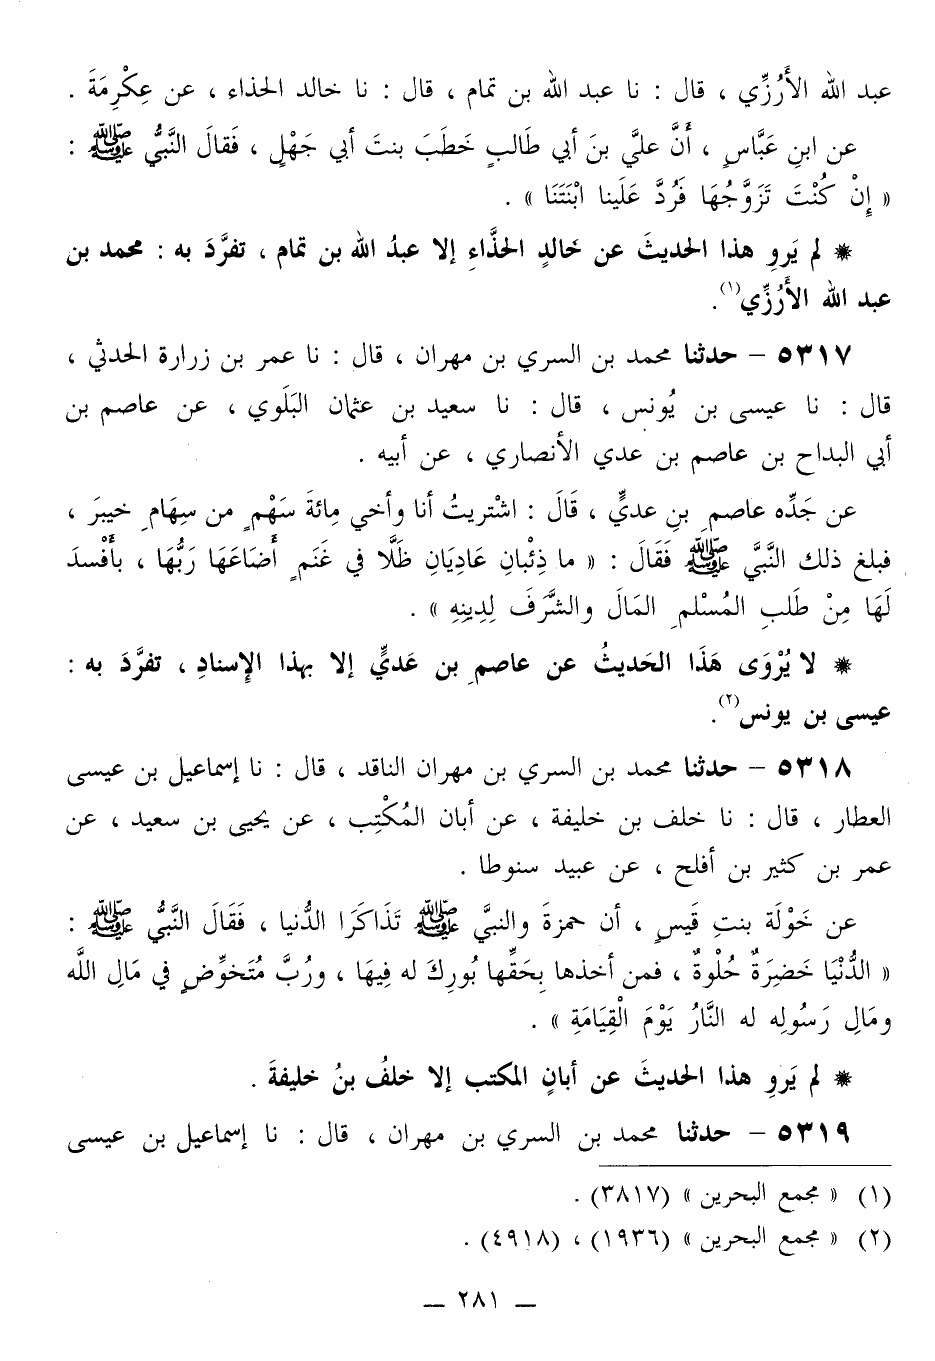 عبد الله الأَرُزِّي ، قال : نا عبد الله بن تمام ، قال : نا خالد الحذاء ، عن عِكْرِمَةَ .
عن ابنِ عَبَّاسٍ ، أَنَّ عليَّ بنَ أبي طَالبٍ خَطَبَ بنتَ أبي جَهْلٍ ، فَقالَ النَّبيُّ ﷺ :
« إِنْ كُنْتَ تَزَوَّجُهَا فَرُدَّ عَلَينا ابْنَتَنَا » .
* لم يَروِ هذا الحديثَ عن خَالدٍ الحذَّاءِ إلا عبدُ الله بن تمام ، تفرَّدَ به : محمد بن
عبد الله الأَرُزِّي(١).
٥٣١٧ – حدثنا محمد بن السري بن مهران ، قال : نا عمر بن زرارة الحدثي ،
قال : نا عيسى بن يُونس ، قال : نا سعيد بن عثمان البَلَوي ، عن عاصم بن
أبي البداح بن عاصم بن عدي الأنصاري ، عن أبيه .
عن جَدِّه عاصمِ بنِ عديٍّ ، قَالَ : اشْتريتُ أنا وأخي مِائةَ سَهْمٍ من سِهَامِ خيبرَ ،
فبلغ ذلك النَّبيَّ ﷺ فَقَالَ : « ما ذِئْبانِ عَادِيَانِ ظَلَّا في غَنَمٍ أَضَاعَهَا رَبُّهَا ، بأَفْسدَ
لَهَا مِنْ طَلبِ المُسْلمِ المَالَ والشَّرَفَ لِدِينِهِ » .
* لا يُرْوَى هَذَا الحَديثُ عن عاصمِ بن عَديٍّ إلا بهذا الإِسنادِ ، تفرَّدَ به :
عيسى بن يونس(٢).
٥٣١٨ – حدثنا محمد بن السري بن مهران الناقد ، قال : نا إسماعيل بن عيسى
العطار ، قال : نا خلف بن خليفة ، عن أبان المُكْتِب ، عن يحيى بن سعيد ، عن
عمر بن كثير بن أفلح ، عن عبيد سنوطا .
عن خَوْلَة بنتِ قَيسٍ ، أن حمزةَ والنبيَّ ﷺ تَذَاكَرَا الدُّنيا ، فَقَالَ النَّبيُّ ﷺ :
« الدُّنْيَا خَضِرَةٌ حُلْوةٌ ، فمن أخذها بِحَقِّها بُورِكَ له فِيهَا ، ورُبَّ مُتَخوِّضٍ في مَالِ اللَّه
ومَالِ رَسُولِه له النَّارُ يَوْمَ الْقِيَامَةِ » .
* لم يَروِ هذا الحديثَ عن أبانٍ المكتب إلا خلفُ بنُ خليفةَ .
٥٣١٩ – حدثنا محمد بن السري بن مهران ، قال : نا إسماعيل بن عيسى
(١) « مجمع البحرين » (٣٨١٧) .
(٢) « مجمع البحرين » (١٩٣٦) ، (٤٩١٨) .
– ٢٨١ –